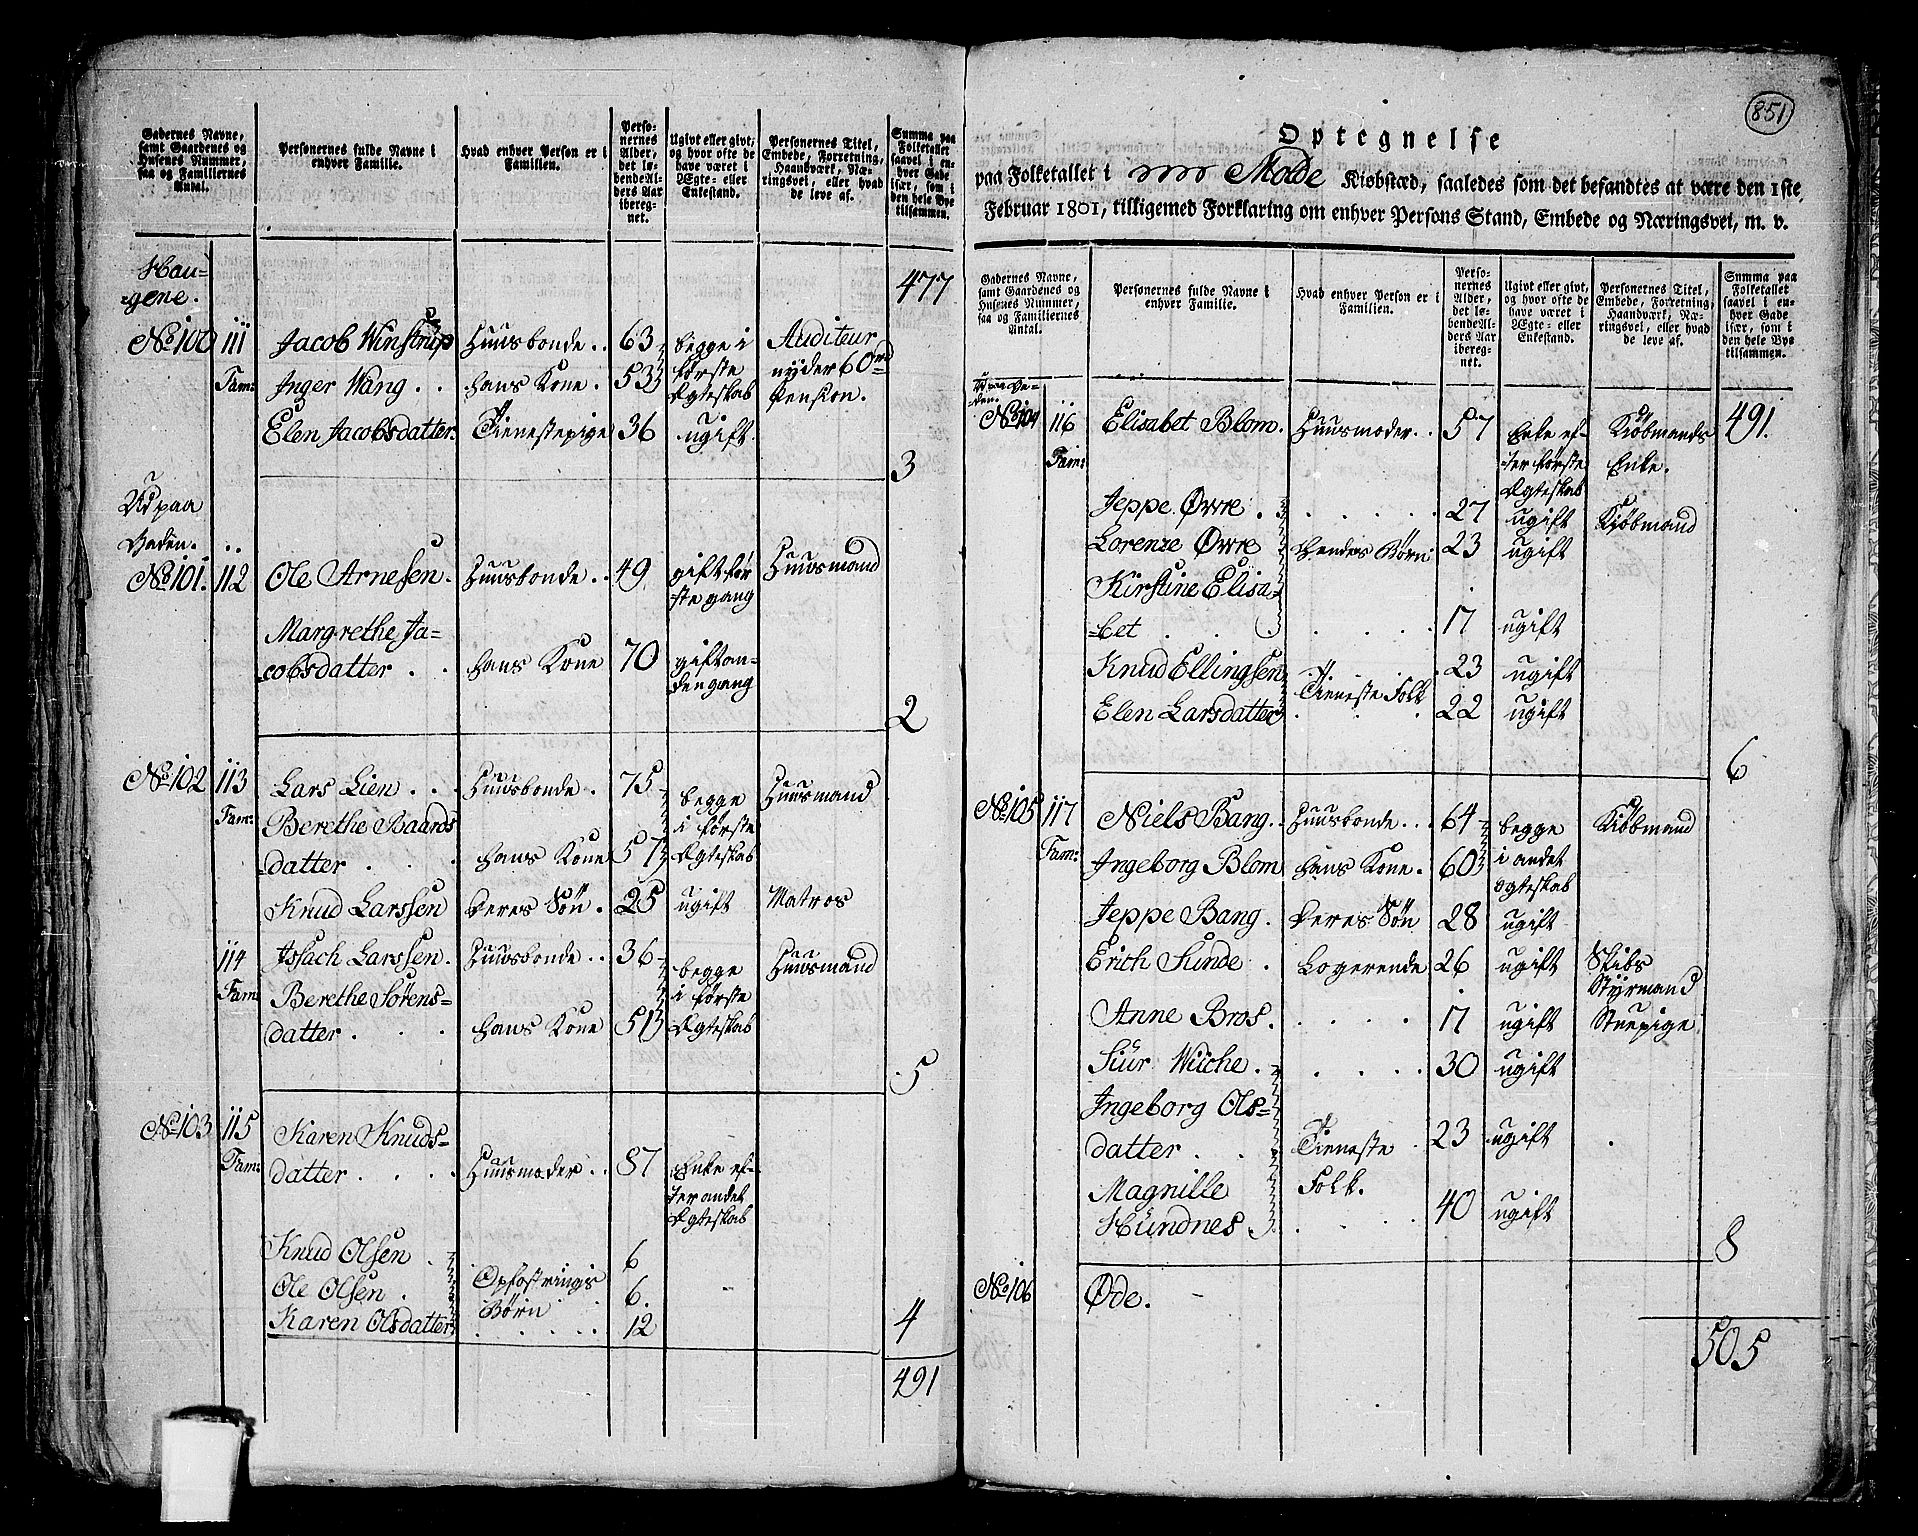 Gadernes Navne, samt Gaardenes og Husenes Nummer, saa og Familiernes Antal.
Personernes fulde Navne i enhver Familie.
Hvad enhver Person er i Familien.
Personernes Alder, det løbende Alders Aar iberegnet.
Ugivt eller givt, og hvor ofte de have været i Ægte- eller Enkestand.
Personernes Titel, Embede, Forretning, Haandværk, Næringsvei, eller hvad de leve af.
Summa paa Folketallet saavel i enhver Gade især, som i den hele Bye tilsammen.
Hau-
-gene. 477
No 100 111 Jacob Winstrup Huusbonde .. 63 begge i Auditeur
Fam: Inger Wang . . hans Kone . 53 første nyder 60 rd
Ægteskab Pension.
Elen Jacobsdatter. Tienestepige 36 ugift.
3
Ud paa
Vaden. ..
No 101. 112 Ole Arnesen. Huusbonde .. 49 gift før- Huusmand
ste gang
Margrethe Ja-
cobsdatter . . hans Kone 70 gift an-
den gang
2
No 102 113 Lars Lien . . . Huusbonde . 75 begge Huusmand
Fam: Berethe Baards i første
datter . . . hans Kone 57 Ægteskab
Knud Larssen deres Søn . 25 ugift Matros
114 Issach Larssen. Huusbonde .. 36 begge Huusmand
Fam: Berethe Sørens- i første
datter . . . hans Kone 51 Ægteskab
5
No 103 115 Karen Knuds-
Fam: datter . . . . Huusmoder . . 87 Enke ef-
ter andet
Ægteskab
Knud Olsen . 6
Ole Olsen . Opfostrings 6.
Karen Olsdatter Børn 12 4
491
851
Optegnelse
paa Folketallet i Molde Kiøbstæd, saaledes som det befandtes at være den 1ste
Februar 1801, tilligemed Forklaring om enhver Persons Stand, Embede og Næringsvei, m. v.
Gadernes Navne, samt Gaardenes og Husenes Nummer, saa og Familiernes Antal.
Personernes fulde Navne i enhver Familie.
Hvad enhver Person er i Familien.
Personernes Alder, det løbende Alders Aar iberegnet.
Ugivt eller givt, og hvor ofte de have været i Ægte- eller Enkestand.
Personernes Titel, Embede, Forretning, Haandværk, Næringsvei, eller hvad de leve af.
Summa paa Folketallet saavel i enhver Gade især, som i den hele Bye tilsammen.
Ud paa Va-
den.
No 104 116 Elisabet Blom. Huusmoder .. 57 Enke ef- Kiøbmands 491.
Fam: ter første Enke.
Ægteskab
Jeppe Øvre . . . . . . 27 ugift Kiøbmand
Lorenze Øvre hendes Børn 23 ugift
Kirstine Elisa-
-bet . . . . . . . 17 ugift
Knud Ellingsen 23 ugift
Tieneste Folk
Elen Larsdatter 22 ugift
6
No 105 117 Niels Bang . . Huusbonde . . . 64 begge Kiøbmand
Fam: Ingeborg Blom hans Kone . 60 i andet
Ægteskab
Jeppe Bang . deres Søn 28 ugift
Erich Sunde . Logerende 26 ugift Skibs
Styrmand
Anne Bros . . . . . 17 ugift Stuepige
Siur Wiche . . . . . 30 ugift
Ingeborg Ols-
datter . . . Tieneste 23 ugift
Magnille Folk.
Hundnes . . . . 40 ugift
8
No 106 Øde.
505